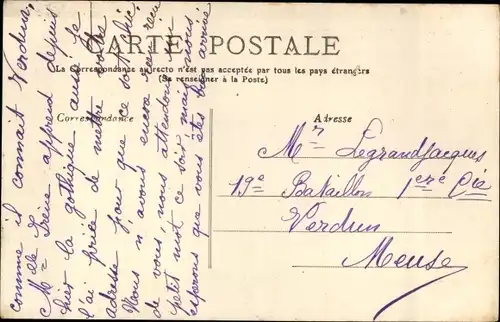 CARTE POSTALE
La Correspondance au recto n'est pas acceptée par tous les pays étrangers
(Se renseigner à la Poste)
Correspondance
Adresse
Mr Legrandjacques
19e Bataillon 1ère Cie
Verdun
Meuse
comme il connait Verdun,
Melle Irène apprend depuis
hier la gothique aussi je
l'ai priée de mettre votre
adresse pour que ce soit
Nous n'avons encore rien
de vous, nous attendons un
petit mot ce soir mais nous
espérons que vous êtes bien arrivé